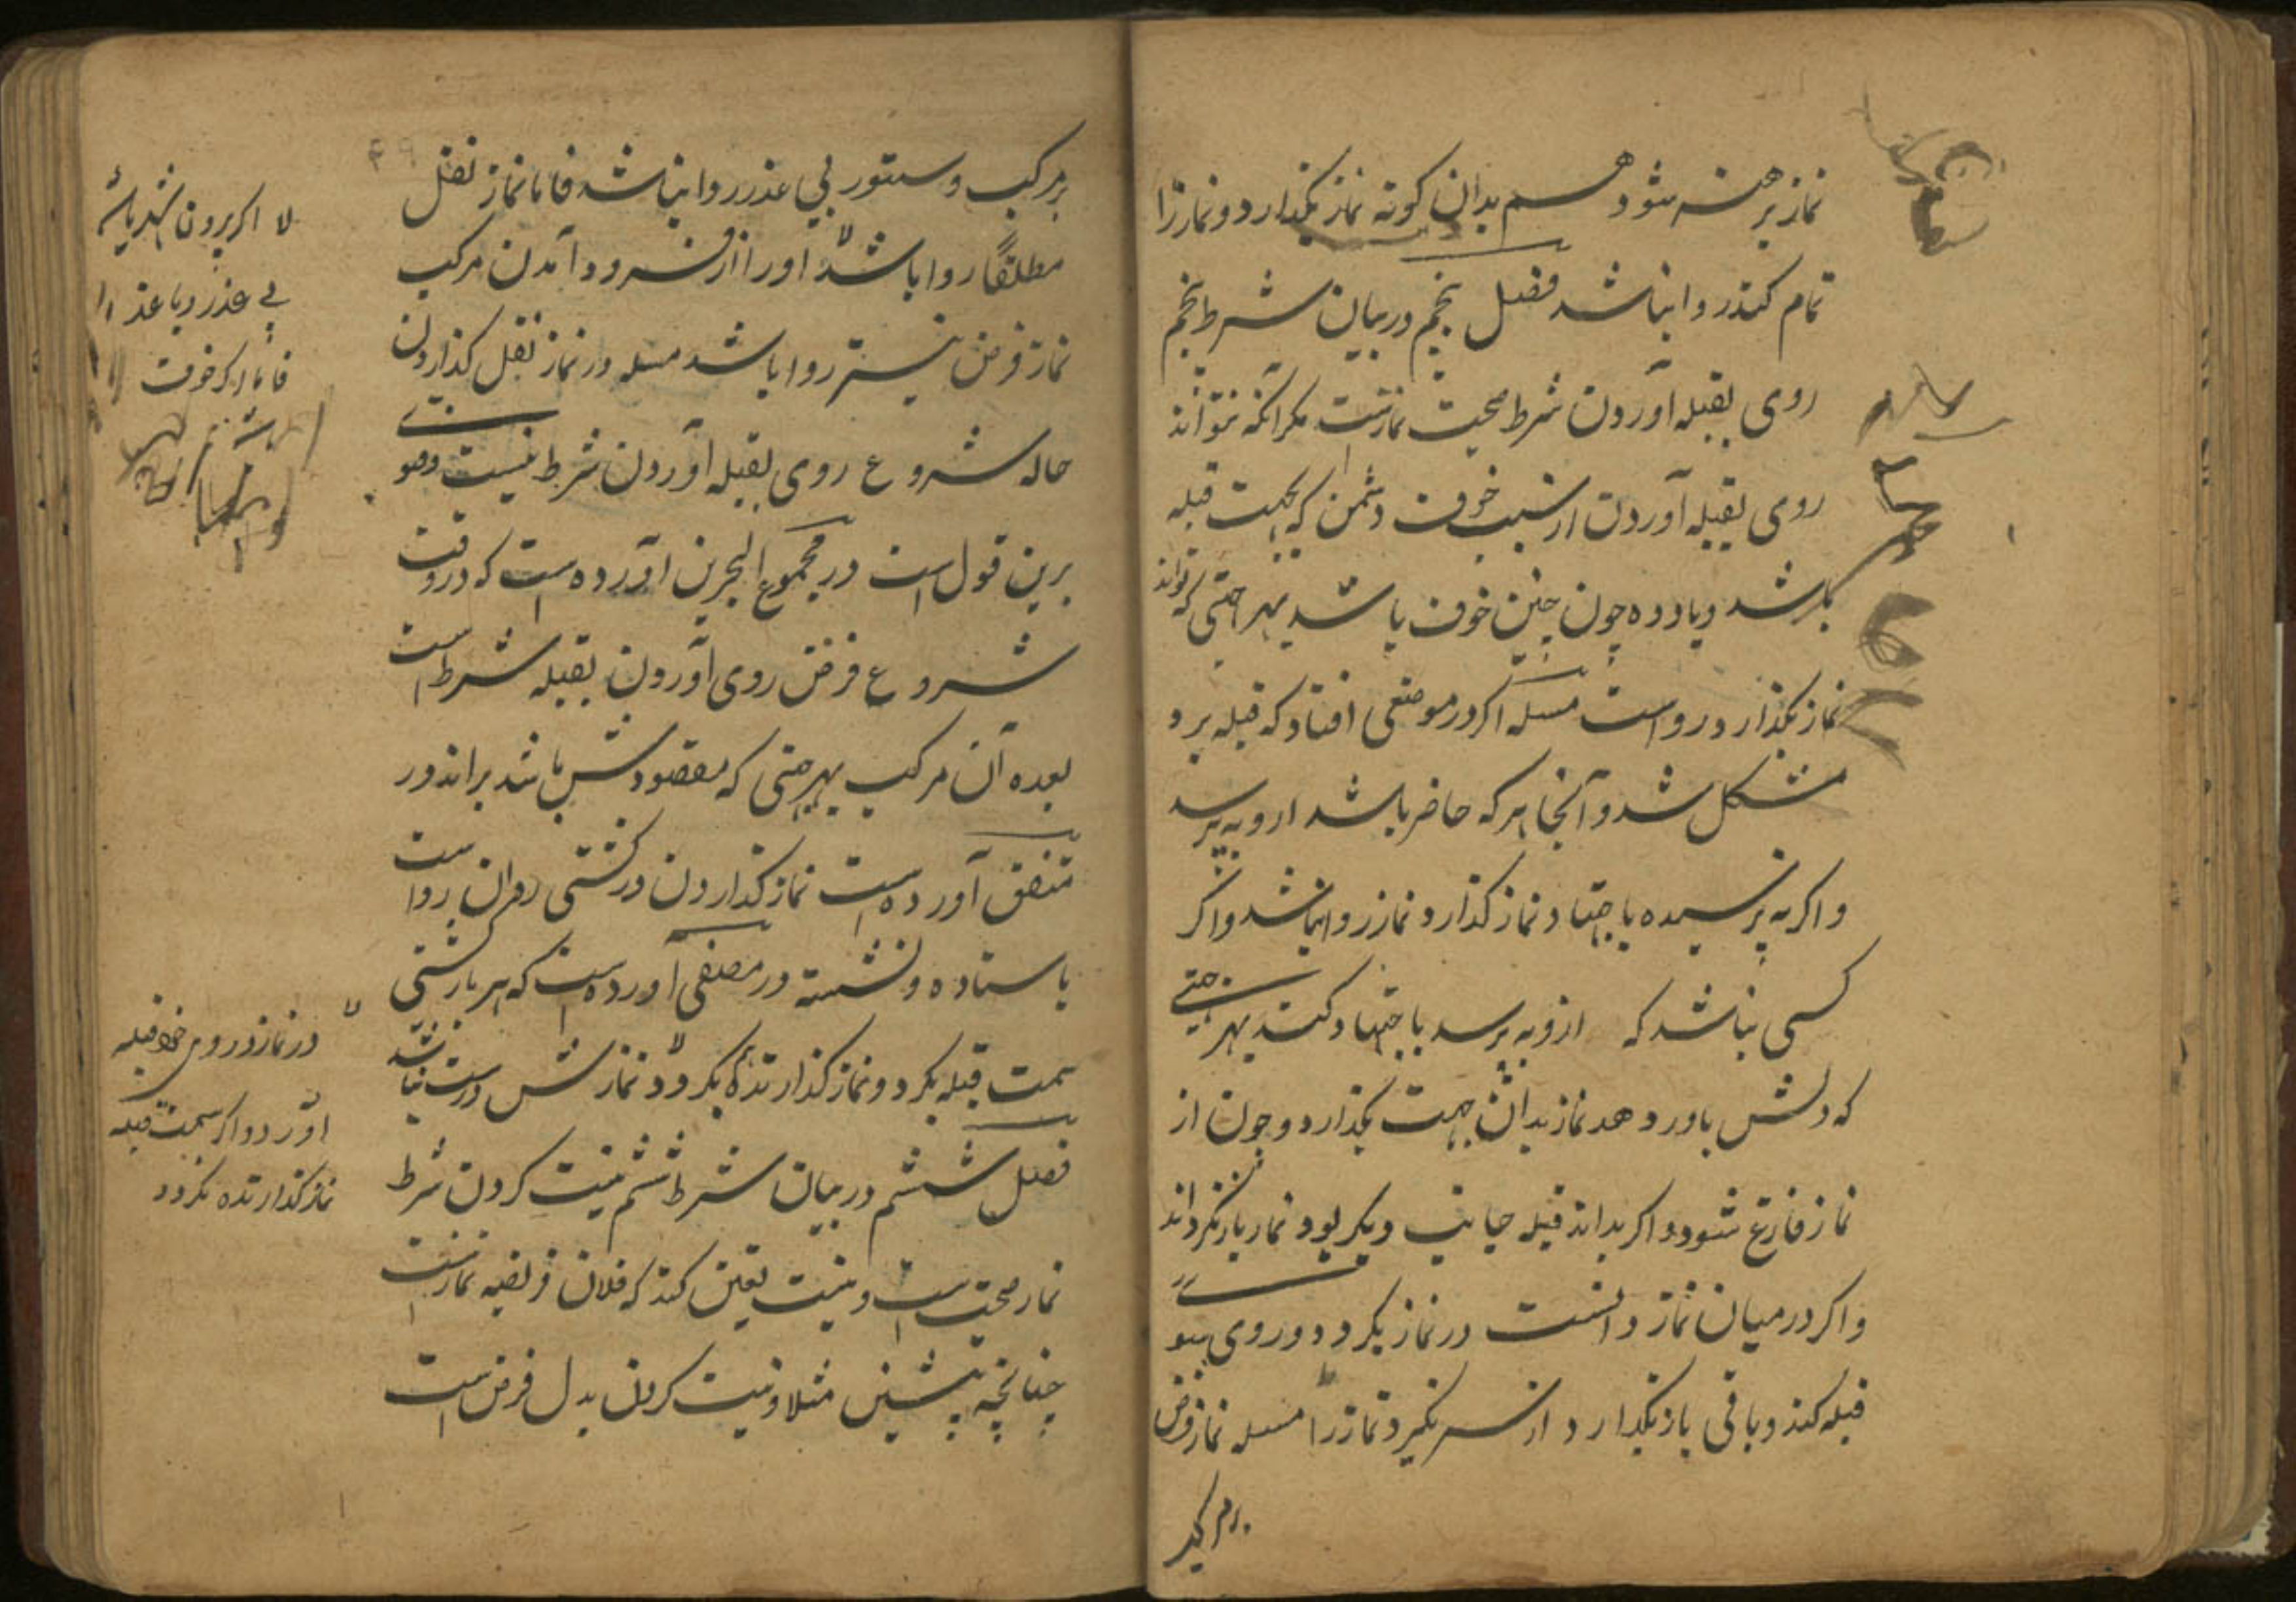 نماز برهنه شود هم بدان کونه نماز بکذارد و نماز را
تمام کند روا نباشد فصل پنجم در بیان شرط پنجم
روی بقبله آوردن شرط صحت نمازست مکر آنکه نتواند
روی بقبله آوردن از سبب خوف دشمن که بجهت قبله
باشد و یا دده چون چنین خوف باشد بهر جهتی که تواند
نماز بکذارد رواست مسله اکر در موضعی افتاد که قبله برو
مشکل شد و آنجا هر که حاضر باشد ازو به پرسد
و اکر به پرسیده باجتهاد نماز کذارد نماز روا نباشد و اکر
کسی نباشد که ازو به پرسد باجتهاد کند بهر جهتی
که دلش باور دهد نماز بدان جهت بکذارد و چون از
نماز فارغ شود و اکر بداند قبله جانب دیکر بود نماز باز نکرداند
و اکر در میان نماز دانست در نماز بکردد و روی بسو
قبله کند و باقی بازبکذارد از سر نکیرد نماز را مسله نماز فرض
بر مرکب
بر مرکب و ستور بی عذر روا نباشد فاما نماز نفل
مطلقا روا باشد او را از فرود آمدن مرکب
نماز فرض نیز روا باشد مسله در نماز نفل کذاردن
حاله شروع روی بقبله آوردن شرط نیست وهو
برین قول است در مجموع البحرین آورده است که در وقت
شروع فرض روی آوردن بقبله شرط است
بعده آن مرکب بهر جهتی که مقصودش باشد براند در
متفق آورده است نماز کذاردن در کشتی روان رواست
باستاده و نشسته در مصفی آورده است که هر بار کشتی
سمت قبله بکردد نماز کذارنده بکردد نمازش درست نباشد
فصل ششم در بیان شرط ششم نیت کردن شرط
نماز صحت است و نیت تعین کند که فلان فریضه نمازست
چنانچه پیشین مثلا و نیت کردن بدل فرض است
لا اکر بیرون شهر یا
بی عذر و با عذر
فاما اکر خوف
در نماز در روی خود قبله
آورد و اکر سمت قبله
نماز کذارنده نکردد